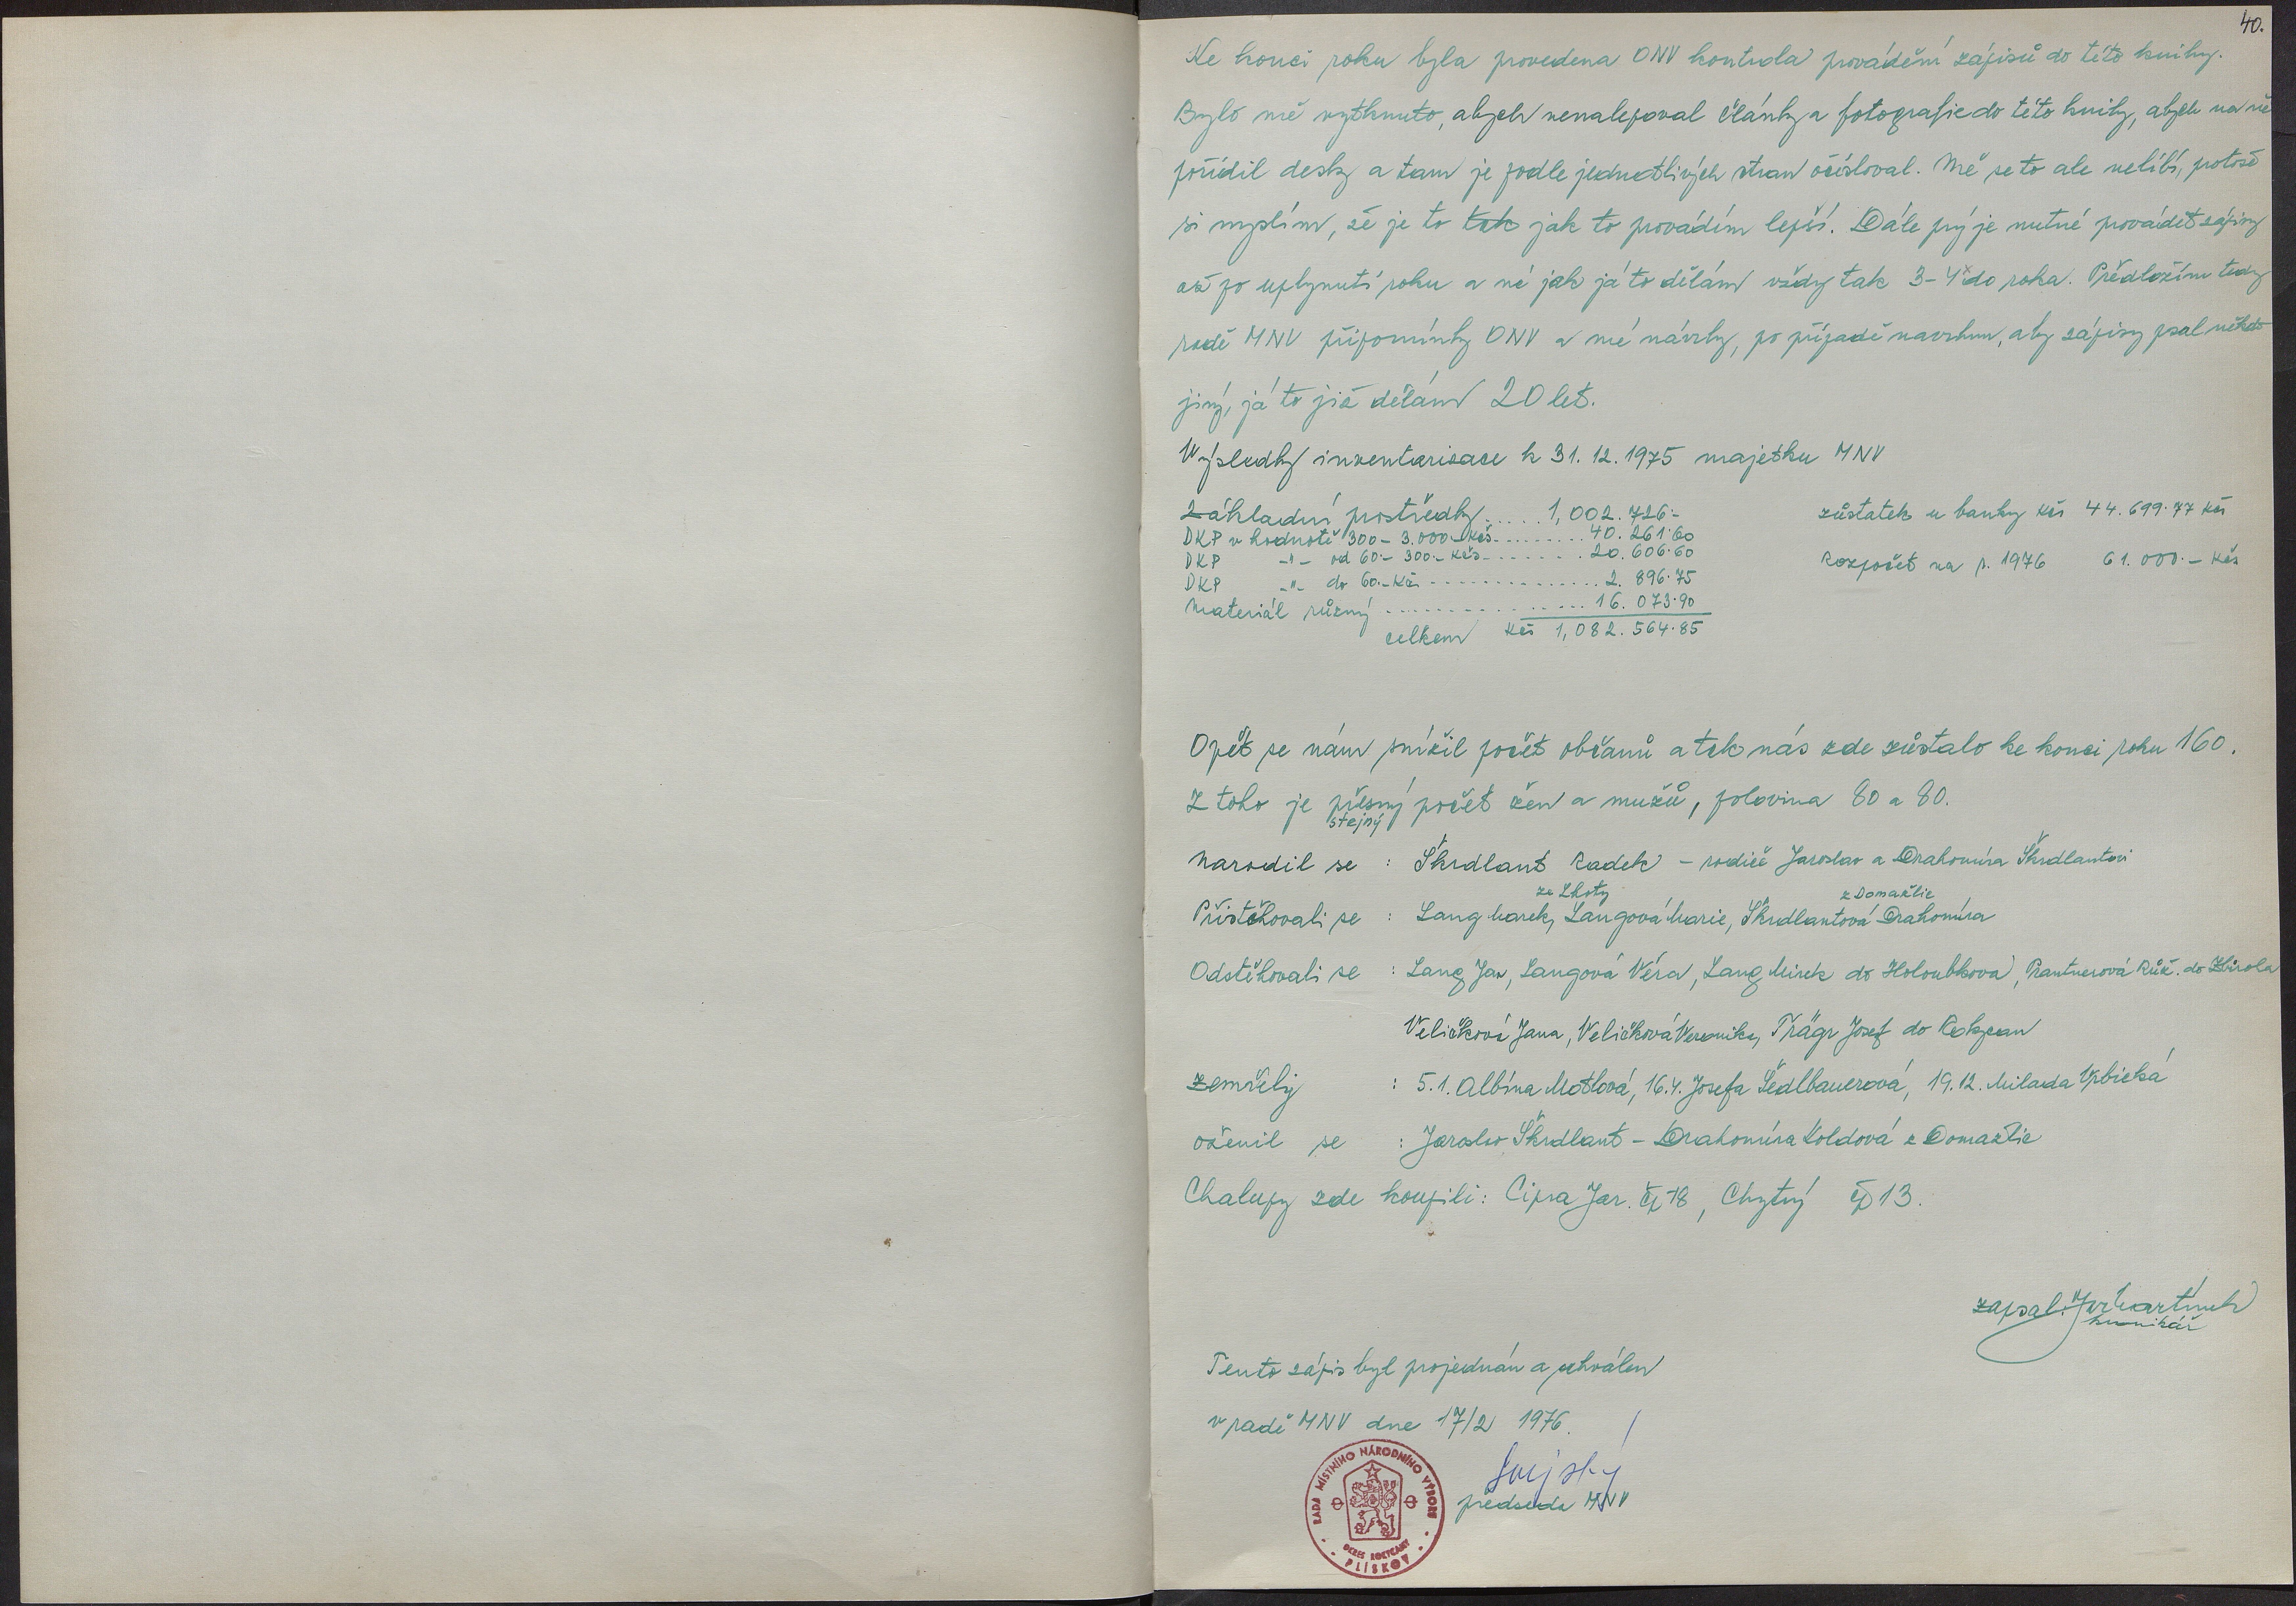 40.
Ke konci roku byla provedena ONV kontrola provádění zápisů do této knihy.
Bylo mě vytknuto, abych nenalepoval články a fotografie do této knihy, abych na ně
pořídil desky a tam je podle jednotlivých stran očísloval. Mě se to ale nelíbí, protože
si myslím, že je to tak jak to provádím lepší. Dále prý je nutné provádět zápisy
až po uplynutí roku a né jak já to dělám vždy tak 3-4x do roka. Předložím tedy
radě MNV připomínky ONV a mé návrhy, po případě navrhnu, aby zápisy psal někdo
jiný, já to již dělám 20 let.
Výsledky inventarisace k 31.12.1975 majetku MNV
Základní prostředky ..... 1,002.726.-
zůstatek u banky Kčs 44.699.77 Kčs
DKP v hodnotě 300 - 3.000.- Kčs ......... 40.261.60
DKP -"- od 60.- 300.- Kčs ........ 20.606.60
Rozpočet na r. 1976 61.000.- Kčs
DKP -"- do 60.- Kčs .............. 2.896.75
Materiál různý ................ 16.073.90
celkem Kčs 1,082.564.85
Opět se nám snížil počet občanů a tak nás zde zůstalo ke konci roku 160.
Z toho je přesný počet žen a mužů, polovina 80 a 80.
stejný
Narodil se : Škrdlant Radek - rodiče Jaroslav a Drahomíra Škrdlantovi
ze Lhoty z Domažlic
Přistěhovali se : Lang Marek, Langová Marie, Škrdlantová Drahomíra
Odstěhovali se : Lang Jan, Langová Věra, Lang Mirek do Holoubkova, Prantnerová Růž. do Zbiroha
Veličková Jana, Veličková Veronika, Trägr Josef do Rokycan
Zemřely : 5.1. Albína Motlová, 16.4. Josefa Šedlbauerová, 19.12. Milada Vrbická
oženil se : Jaroslav Škrdlant - Drahomíra Koldová z Domažlic
Chalupy zde koupili: Cipra Jar. čp 18, Chytrý čp 13.
zapsal: Jar Martínek
kronikář
Tento zápis byl projednán a schválen
v radě MNV dne 17/2 1976.
předseda MNV
RADA MÍSTNÍHO NÁRODNÍHO VÝBORU
OKRES ROKYCANY
PLÍSKOV